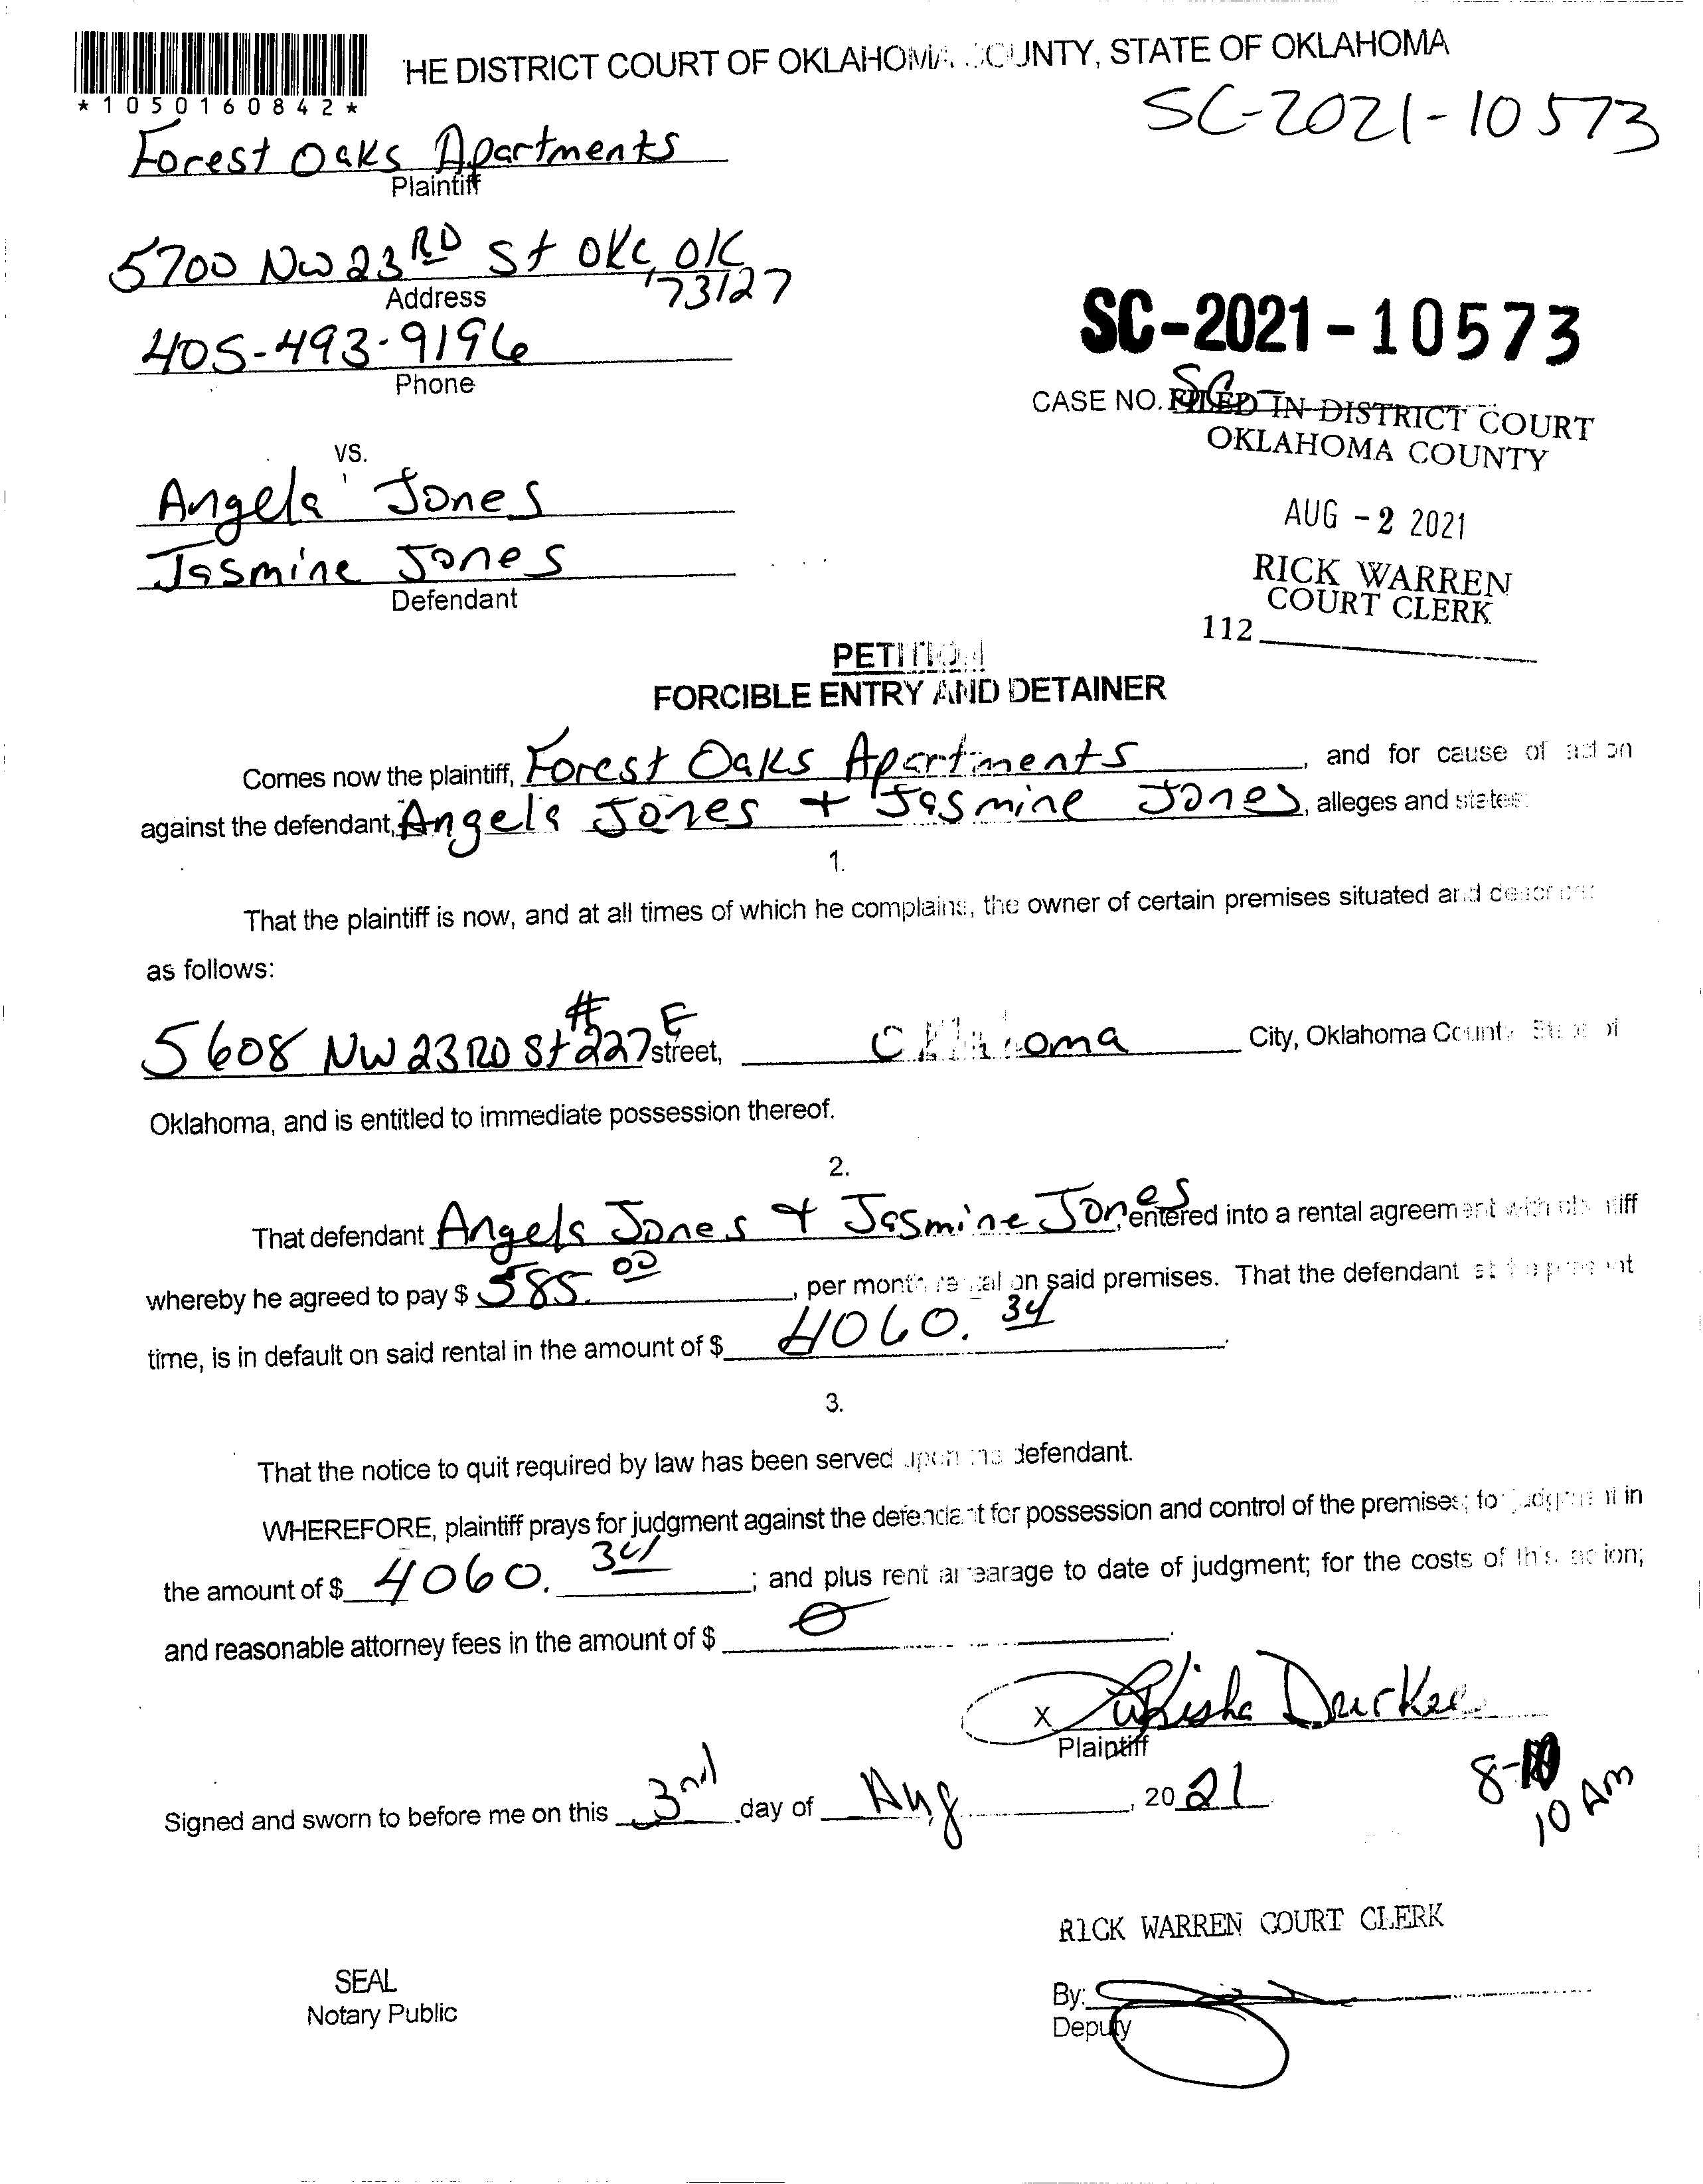 HE DISTRICT COURT OF OKLAHOMA COUNTY, STATE OF OKLAHOMA
*1050160842*
SC-2021-10573
Forest Oaks Apartments
Plaintiff
5700 NW 23RD St OKC, OK
73127
Address
405-493-9196
Phone
SC-2021-10573
CASE NO. SC-
FILED IN DISTRICT COURT
OKLAHOMA COUNTY
vs.
Angela Jones
AUG -2 2021
Jasmine Jones
Defendant
RICK WARREN
COURT CLERK
112
PETITION
FORCIBLE ENTRY AND DETAINER
Comes now the plaintiff, Forest Oaks Apartments, and for cause of action
against the defendant, Angela Jones + Jasmine Jones, alleges and states:
1.
That the plaintiff is now, and at all times of which he complains, the owner of certain premises situated and
as follows:
5608 NW 23RD St #227E street, Oklahoma City, Oklahoma County State of
Oklahoma, and is entitled to immediate possession thereof.
2.
That defendant Angela Jones + Jasmine Jones entered into a rental agreement with plaintiff
whereby he agreed to pay $ 585.00, per month rental on said premises. That the defendant at the present
time, is in default on said rental in the amount of $ 4060.34.
3.
That the notice to quit required by law has been served upon the defendant.
WHEREFORE, plaintiff prays for judgment against the defendant for possession and control of the premises; for judgment in
the amount of $ 4060.34; and plus rent arrearage to date of judgment; for the costs of this action;
and reasonable attorney fees in the amount of $ 0.
X
Plaintiff
Signed and sworn to before me on this 3rd day of Aug, 2021
8-10
10 AM
RICK WARREN COURT CLERK
SEAL
Notary Public
By:
Deputy